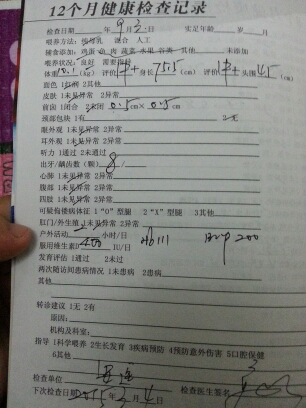 12个月健康检查记录
检查日期 年 9 月 3 日 实足年龄 岁 月
喂养方法: 母乳 混合 人工
辅食添加: 鸡蛋 鱼 肉 蔬菜 水果 谷类 其他 未添加
喂养状况: 良好 需要指导
体重 10.1 (kg) 评价 中+ 身长 75.5 (cm) 评价 中 头围 45 (cm)
面色 1红润 2其他
皮肤 1未见异常 2异常
前囟 1闭合 2未闭 0.5 cm× 0.5 cm
颈部包块 1有 2无
眼外观 1未见异常 2异常
耳外观 1未见异常 2异常
听力 1通过 2未通过
出牙/龋齿数 (颗) 8/
心肺 1未见异常 2异常
腹部 1未见异常 2异常
四肢 1未见异常 2异常
可疑佝偻病体征 1 "O"型腿 2 "X"型腿 3其他
肛门/外生殖 1未见异常 2异常
户外活动 2 小时/日
服用维生素D 400 IU/日
发育评估 1通过 2未过
两次随访间患病情况 1未患病 2患病
其他
转诊建议 1无 2有
原因:
机构及科室:
指导 1科学喂养 2生长发育 3疾病预防 4预防意外伤害 5口腔保健
6其他 3
检查单位 检查医生签名
下次检查日期 2015 年 3 月 4 日